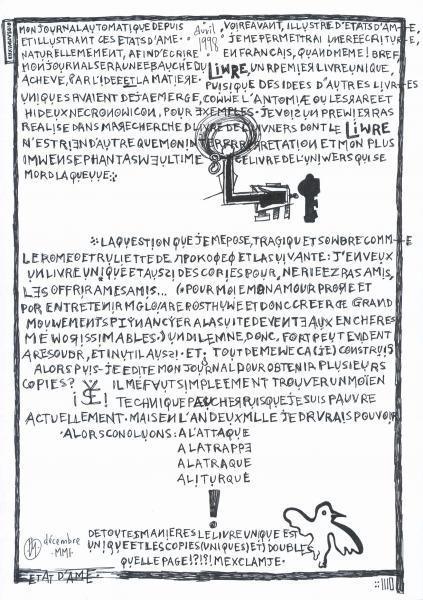 MON JOURNAL AUTOMATIQUE DEPUIS Avril 1998 VOIRE AVANT, ILLUSTRE D'ETATS D'AME,
ET ILLUSTRANT CES ETATS D'AME. JE ME PERMETTRAI UNE REECRITURE,
NATURELLEMEMENT, AFIN D'ECRIRE EN FRANÇAIS, QUAND MEME! BREF,
MON JOURNAL SERA UNE EBAUCHE DU LIVRE, UN PREMIER LIVRE UNIQUE,
ACHEVE, PAR L'IDEE ET LA MATIERE. PUISIQUE DES IDEES D'AUTRES LIVRES
UNIQUES AVAIENT DEJA EMERGE, COMME L'ANTOMIAE OU LES RARE ET
HIDEUX NECRONOWICON, POUR EXEMPLES. JE VOIS UN PREMIER RAS
REALISE DANS MA RECHERCHE DU LIVRE DE L'UNIVERS DONT LE LIWRE
N'EST RIEN D'AUTRE QUE MON INTERPRETATION ET MON PLUS
IMWENSE PHANTASWE ULTIME CE LIVRE DE L'UNIWERS QUI SE
MORD LA QUEUE.
LA QUESTION QUE JE ME POSE, TRAGIQUE ET SOMBRE COMME
LE ROMEO ET RULIETTE DE EST LA SUIVANTE: J'EN VEUX
UN LIVRE UNIQUE ET AUSSI DES COPIES POUR, NE RIEEZ PAS AMIS,
LES OFFRIR A MES AMIS... (POUR MOI E MON AMOUR PROPRE ET
POR ENTRETENIR MA GLOIARE POSTHUWE ET DONC CREER DE GRAND
MOUWEMENTS FINYANCYER A LA SUITE DE VENTE AUX ENCHERES
MEWORISSIMABLES.) UN DILEMNE, DONC, FORT PEUT EVIDENT
A RESOUDR, ET INUTIL AUSSI. ET. TOUT DE MEWE CA (JE) CONSTRUIS
ALORS PUIS-JE EDITE MON JOURNAL POUR OBTENIR PLUSIEURS
COPIES? IL ME FVUT SIMPLEEMENT TROUVER UN MOIEN
TECHNIQUE PAUCHER PUISQUE JE SUIS PAUVRE
ACTUELLEMENT. MAIS EN L'AN DEUX MLLE JE DRVRAIS POUVOIR
ALORS CONOLUONS: A L'ATTAQUE
A LA TRAPPE
A LA TRAQUE
A LITURQUE
!
DE TOUTES MANIERES LE LIVRE UNIQUE EST
UNIQUE ET LES COPIES (UNIQUES) ET) DOUBLES
QUELLE PAGE!?!?! MEXCLAMJE.
décembre
MMI
ETAT D'AME